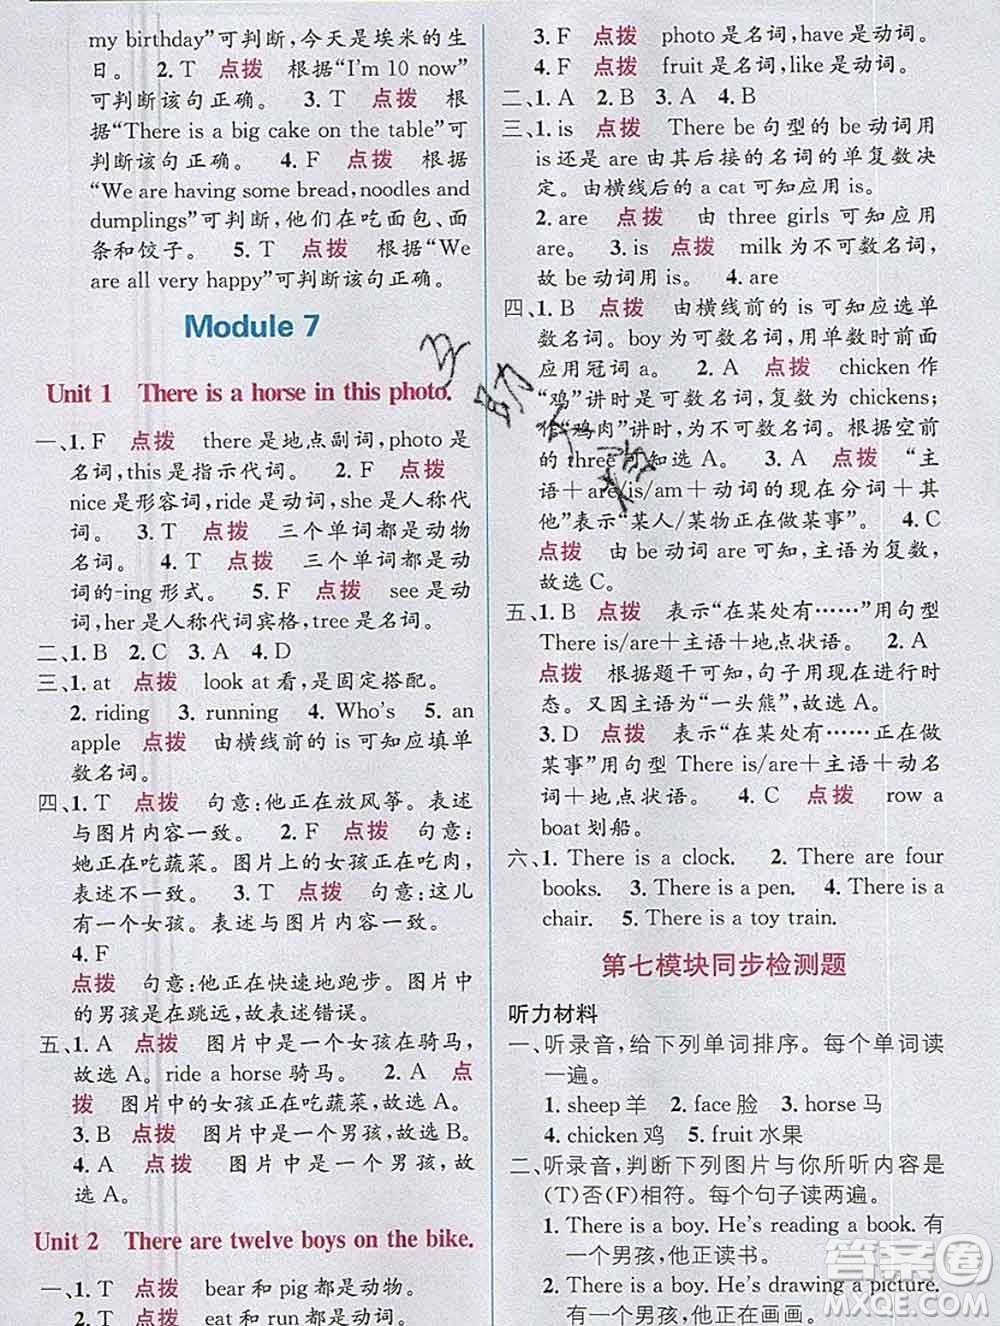 my birthday”可判断,今天是埃米的生
日。 2. T 点拨 根据“I'm 10 now”
可判断该句正确。 3. T 点拨 根
据“There is a big cake on the table”可
判断该句正确。 4. F 点拨 根据
“We are having some bread, noodles and
dumplings”可判断,他们在吃面包、面
条和饺子。 5. T 点拨 根据“We
are all very happy”可判断该句正确。
Module 7
Unit 1 There is a horse in this photo.
一、1. F 点拨 there 是地点副词,photo 是
名词,this 是指示代词。 2. F 点拨
nice 是形容词,ride 是动词,she 是人称代
词。 3. T 点拨 三个单词都是动物
名词。 4. T 点拨 三个单词都是动
词的-ing 形式。 5. F 点拨 see 是动
词,her 是人称代词宾格,tree 是名词。
二、1. B 2. C 3. A 4. D
三、1. at 点拨 look at 看,是固定搭配。
2. riding 3. running 4. Who's 5. an
apple 点拨 由横线前的 is 可知应填单
数名词。
四、1. T 点拨 句意:他正在放风筝。表述
与图片内容一致。 2. F 点拨 句意:
她正在吃蔬菜。图片上的女孩正在吃肉,
表述不一致。 3. T 点拨 句意:这儿
有一个女孩。表述与图片内容一致。
4. F
点拨 句意:他正在快速地跑步。图片中
的男孩是在跳远,故表述错误。
五、1. A 点拨 图片中是一个女孩在骑马,
故选A。ride a horse 骑马。 2. A 点
拨 图片中的女孩正在吃蔬菜,故选A。
3. B 点拨 图片中是一个男孩,故选B。
4. A 点拨 图片中是一个男孩,故选
A。
Unit 2 There are twelve boys on the bike.
一、1. T 点拨 bear 和 pig 都是动物。
2. T 点拨 eat 和 run 都是动词。
3. F 点拨 photo 是名词,have 是动词。
4. F 点拨 fruit 是名词,like 是动词。
二、1. A 2. B 3. A 4. B
三、1. is 点拨 There be 句型的 be 动词用
is 还是 are 由其后接的名词的单复数决
定。由横线后的 a cat 可知应用 is。
2. are 点拨 由 three girls 可知应用
are。 3. is 点拨 milk 为不可数名词,
故 be 动词用 is。 4. are
四、1. B 点拨 由横线前的 is 可知应选单
数名词。boy 为可数名词,用单数时前面
应用冠词 a。 2. A 点拨 chicken 作
“鸡”讲时是可数名词,复数为 chickens;
作“鸡肉”讲时,为不可数名词。根据空前
的 three 可知选 A。 3. A 点拨 “主
语+are/is/am+动词的现在分词+其
他”表示“某人/某物正在做某事”。 4. C
点拨 由 be 动词 are 可知,主语为复数,
故选 C。
五、1. B 点拨 表示“在某处有……”用句型
There is/are+主语+地点状语。 2. A
点拨 根据题干可知,句子用现在进行时
态。又因主语为“一头熊”,故选A。
3. D 点拨 表示“在某处有……正在做
某事”用句型 There is/are+主语+动名
词+地点状语。 4. C 点拨 row a
boat 划船。
六、1. There is a clock. 2. There are four
books. 3. There is a pen. 4. There is a
chair. 5. There is a toy train.
第七模块同步检测题
听力材料
一、听录音,给下列单词排序。每个单词读
一遍。
1. sheep 羊 2. face 脸 3. horse 马
4. chicken 鸡 5. fruit 水果
二、听录音,判断下列图片与你所听内容是
(T)否(F)相符。每个句子读两遍。
1. There is a boy. He's reading a book. 有
一个男孩,他正读书。
2. There is a boy. He's drawing a picture.
有一个男孩,他正在画画。
答案圈
MXQE.COM